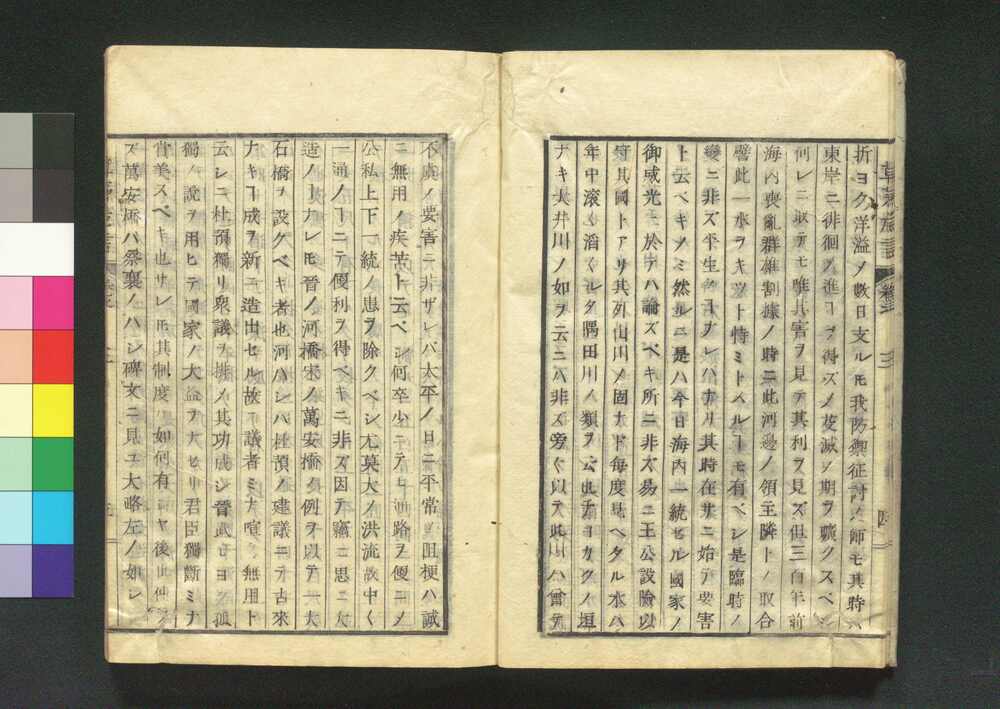 折ヨク洋溢メ數日支ルモ我防禦征討ノ師モ其時ハ
東岸ニ徘徊メ進コヿ得ズメ芟滅ノ期ヲ曠クスベシ
何レニ取テモ唯其害ヲ見テ其利ヲ見ズ但三百年前
海内喪亂群雄割據ノ時ニ此河邊ノ領主隣トノ取合
譬此一水ヲキツト恃ミトスルヿモ有ベシ是臨時ノ
變ニ非ズ平生ノ
ト云ベキノミ然ルニ是ハ今日海内一統セル國家ノ
御威光ニ於テハ論ズベキ所ニ非ズ易ニ王公設險以
守其國トアリ其外山川ノ固ナド毎度見ヘタル水ハ
年中滚々滔々タル隅田川ノ類ヲ云
ナキ大井川ノ如ヲ云ニハ非ズ旁々以テ此川ハ曾テ
不虞ノ要害ニ非ザレバ太平ノ日ニ平常ノ阻梗ハ誠
ニ無用ノ疾苦ト云ベシ何卒少ニテモ通路ヲ便ニメ
公私上下一統ノ患ヲ除クベシ尤莫大ノ洪流故中々
一通ノヿニテ便利ヲ得ベキニ非ズ因テ竊ニ思ニ大
造ノヿナレモ晉ノ河橋宋ノ萬安橋ノ例ヲ以テ一大
石橋ヲ設クベキ者也河ハシハ杜預ノ建議ニテ古來
ナキヿ成ヲ新ニ造出セル故ニ議者ミナ喧々無用ト
云シニ杜預獨リ衆議ヲ排メ其功成シ晉武モヨク孤
獨ノ説ヲ用ヒテ國家ノ大益ヲナセリ君臣獨斷ミナ
賞美スベキ也サレモ其制度ハ如何有
ズ萬安橋ハ蔡襄ノハシ碑文ニ見ユ大略左ノ如シ